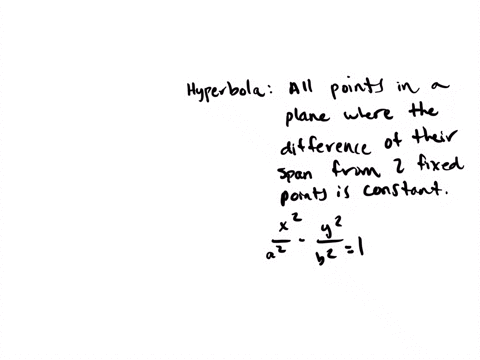 Hyperbola: All points in a
plane where the
difference of their
span from 2 fixed
points is constant.
x²/a² - y²/b² = 1